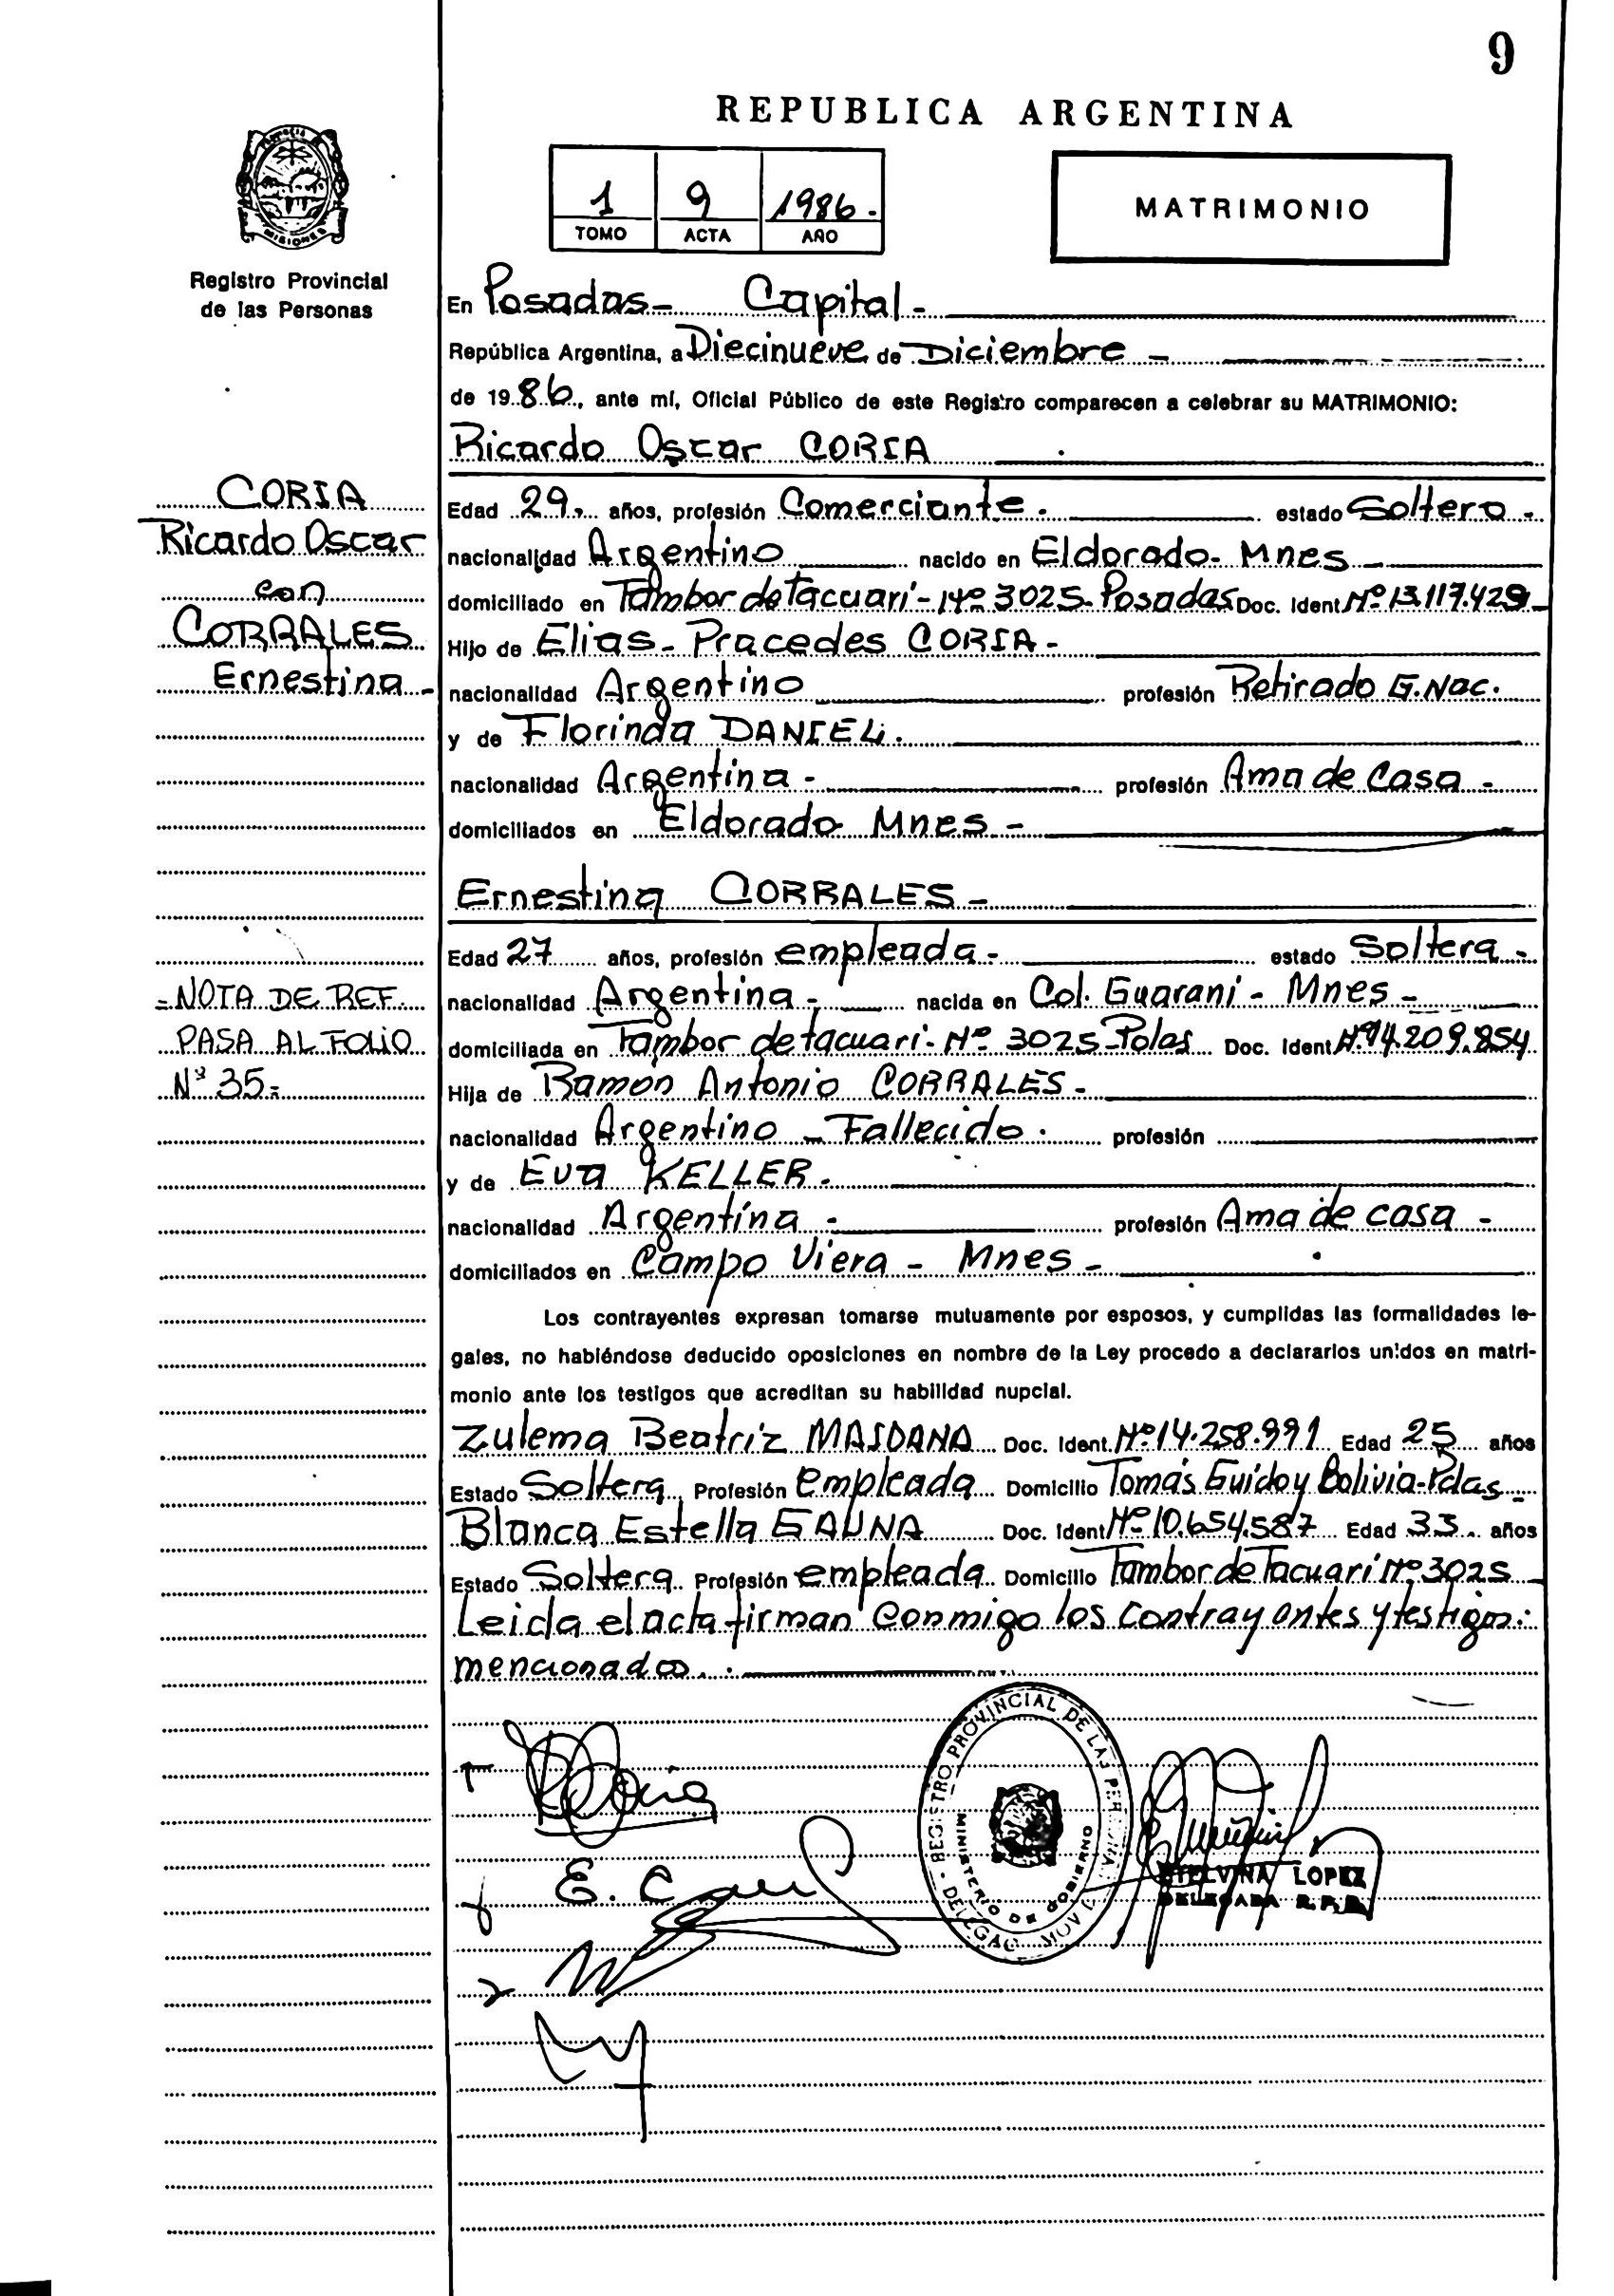 9
REPUBLICA ARGENTINA
MISIONES
Registro Provincial
de las Personas
1 9 1986.-
TOMO ACTA AÑO
MATRIMONIO
En Posadas- Capital-
República Argentina, a Diecinueve de Diciembre -
de 1986, ante mí, Oficial Público de este Registro comparecen a celebrar su MATRIMONIO:
Ricardo Oscar CORIA
CORIA
Ricardo Oscar
con
CORRALES
Ernestina-
Edad 29. años, profesión Comerciante. estado Soltero-
nacionalidad Argentino nacido en Eldorado- Mnes
domiciliado en Tambor de Tacuari- Nº 3025- Posadas Doc. Ident Nº 13.117.429-
Hijo de Elias- Pracedes CORIA-
nacionalidad Argentino profesión Retirado G.Nac.
y de Florinda DANIEL.
nacionalidad Argentina- profesión Ama de Casa-
domiciliados en Eldorado Mnes-
Ernestina CORRALES-
Edad 27 años, profesión empleada- estado Soltera-
nacionalidad Argentina- nacida en Col. Guarani- Mnes-
domiciliada en Tambor de tacuari- Nº 3025- Doc. Ident Nº 14.209.854
Hija de Ramón Antonio CORRALES-
nacionalidad Argentino - Fallecido. profesión
y de Eva KELLER.
nacionalidad Argentina- profesión Ama de casa-
domiciliados en Campo Viera- Mnes-
-NOTA DE REF.
PASA AL FOLIO
Nº 35-
Los contrayentes expresan tomarse mutuamente por esposos, y cumplidas las formalidades le-
gales, no habiéndose deducido oposiciones en nombre de la Ley procedo a declararlos unidos en matri-
monio ante los testigos que acreditan su habilidad nupcial.
Zulema Beatriz MAIDANA Doc. Ident. Nº 14.258.991 Edad 25 años
Estado Soltera Profesión empleada Domicilio Tomás Guido y Bolivia-Pdas-
Blanca Estella GAUNA Doc. Ident Nº 10.654.587 Edad 33. años
Estado Soltera Profesión empleada Domicilio Tambor de Tacuarí Nº 3025
Leida el acta firman conmigo los contrayentes y testigos
mencionados.
REGISTRO PROVINCIAL DE LAS PERSONAS
MINISTERIO DE GOBIERNO
E. C
LOPEZ
DELEGADA R.P.P.